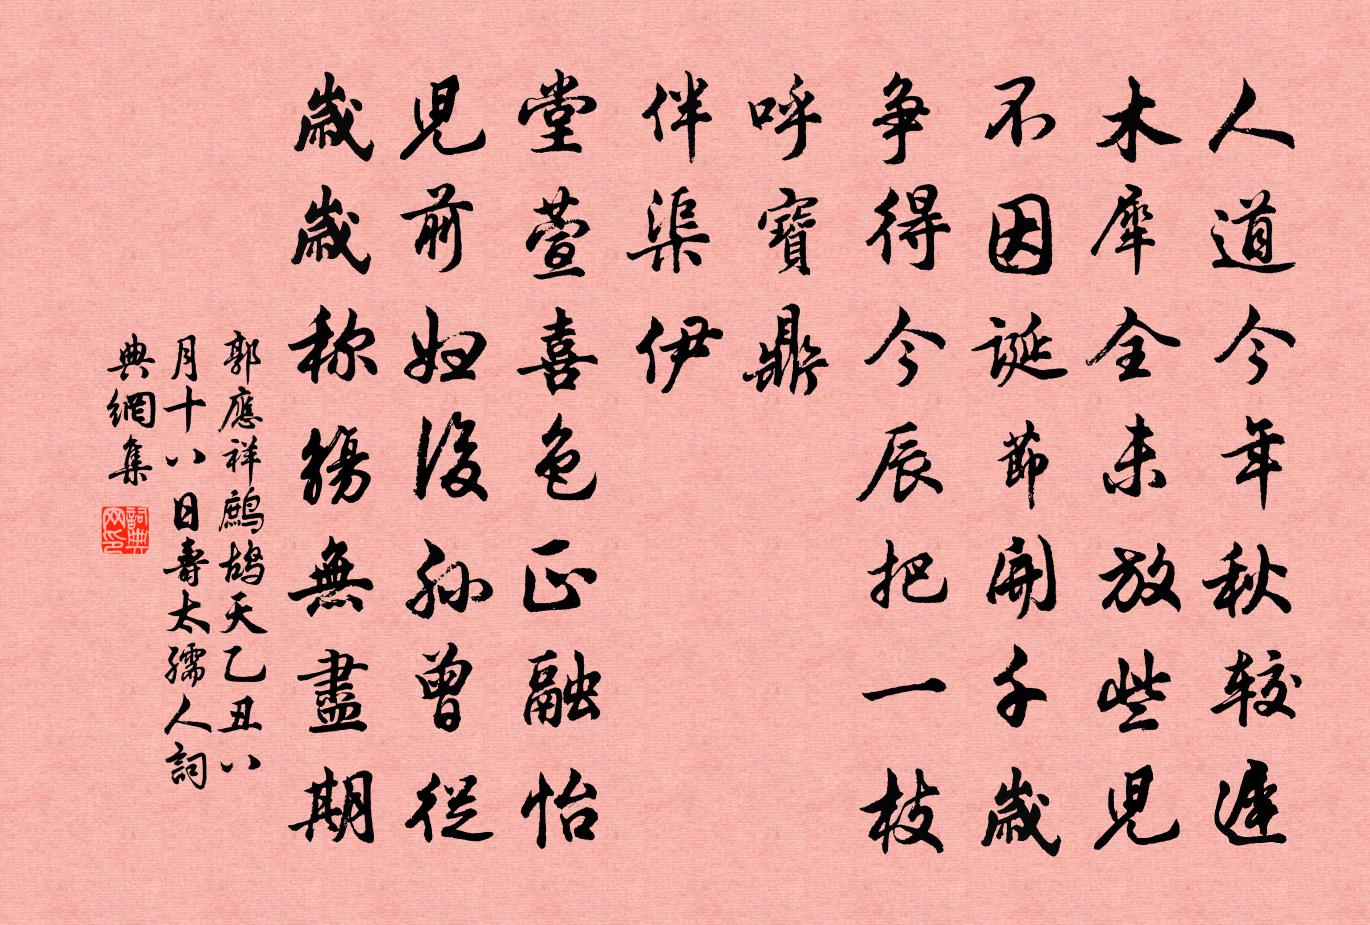 人道今年秋較遲
木犀全未放些兒
不因誕節開千歲
爭得今辰把一枝
呼寶鼎
伴渠伊
堂萱喜色正融怡
兒前婦後孫曾從
歲歲稱觴無盡期
郭應祥鷓鴣天乙丑八
月十八日壽太孺人詞
典網集
詞典网印